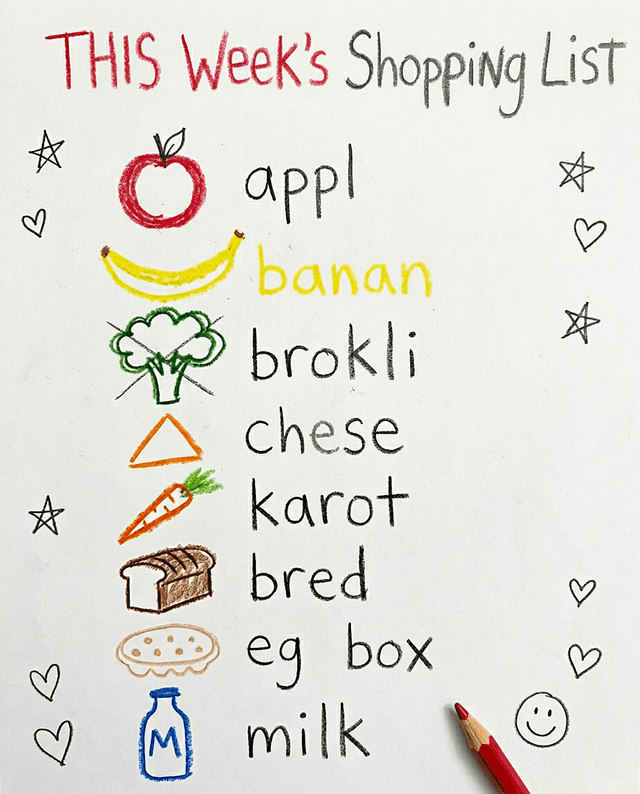 THIS Week's Shopping List
appl
banan
brokli
chese
karot
bred
eg box
M milk